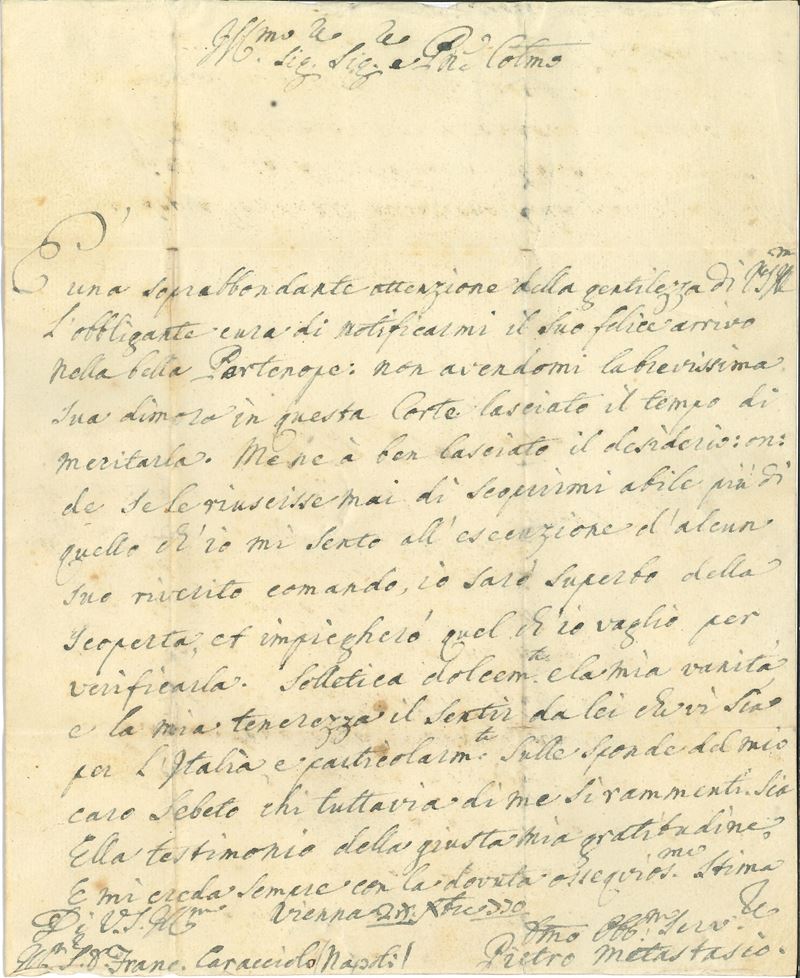 Ill.mo Sig.re Sig.re e P.ne Colmo
E' una soprabbondante attenzione della gentilezza di V.S. Ill.ma
L'obbligante cura di notificarmi il suo felice arrivo
nella bella Partenope: non avendomi la brevissima
sua dimora in questa Corte lasciato il tempo di
meritarla. Me ne à ben lasciato il desiderio: on:
de se le riuscisse mai di scoprirmi abile più di
quello ch'io mi sento all'esecuzione d'alcun
suo riverito comando, io sarò superbo della
scoperta, et impiegherò quel ch'io vaglio per
verificarla. Solletica dolcem.te e la mia vanità,
e la mia tenerezza il sentir da lei che vi sia
per L'Italia e particolarm.te sulle sponde del mio
caro Sebeto chi tuttavia di me si rammenti. Sia
Ella testimonio della giusta mia gratitudine,
E mi creda sempre con la dovuta ossequios.ma stima
Di V.S. Ill.ma Vienna Xbre
Dmo Obb.mo Serv.re
Franc. Caracciolo (Napoli) Pietro Metastasio.